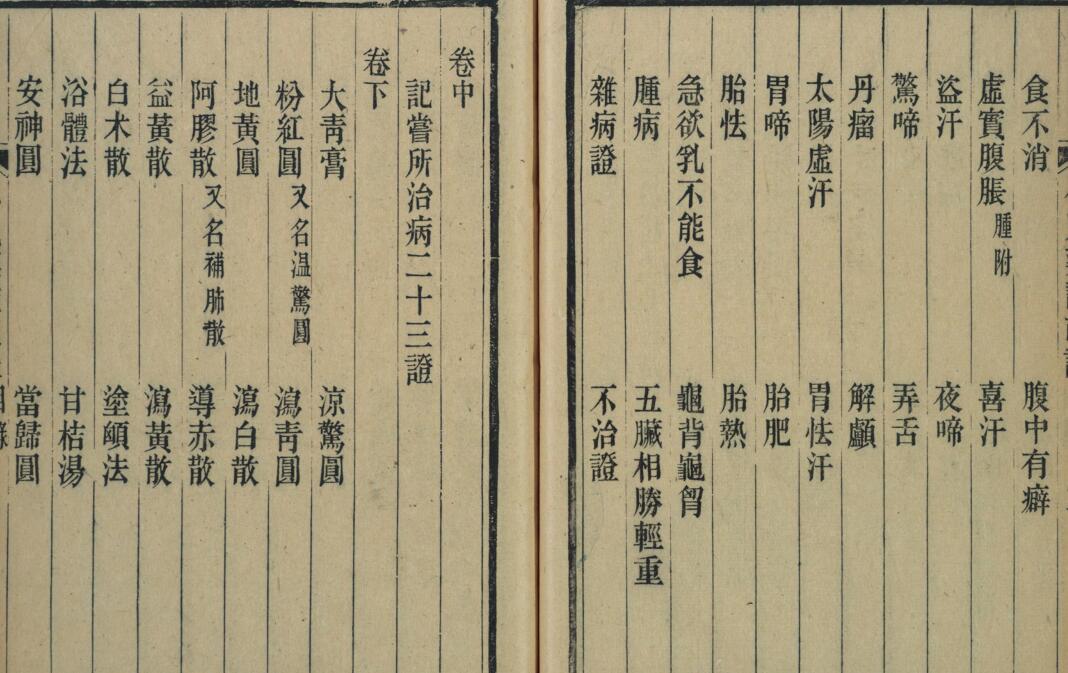 食不消 腹中有癖
虛實腹脹 腫附 喜汗
盜汗 夜啼
驚啼 弄舌
丹瘤 解顱
太陽虛汗 胃怯汗
胃啼 胎肥
胎怯 胎熱
急欲乳不能食 龜背龜胷
腫病 五臟相勝輕重
雜病證 不治證
卷中
記嘗所治病二十三證
卷下
大青膏 涼驚圓
粉紅圓 又名温驚圓 瀉青圓
地黃圓 瀉白散
阿膠散 又名補肺散 導赤散
益黃散 瀉黃散
白木散 塗顖法
浴體法 甘桔湯
安神圓 當歸圓